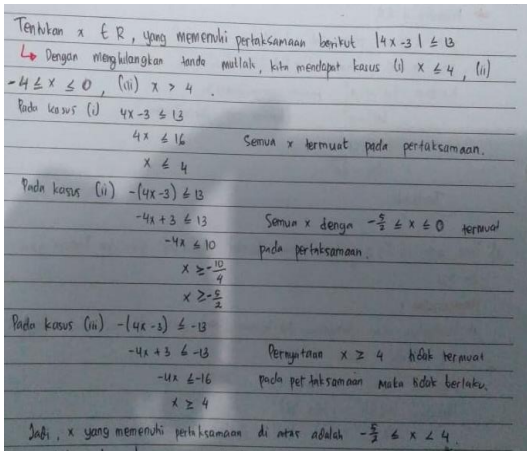 Tentukan x ∈ R, yang memenuhi pertaksamaan berikut |4x-3| ≤ 13
↳ Dengan menghilangkan tanda mutlak, kita mendapat kasus (i) x ≤ 4, (ii)
-4 ≤ x ≤ 0, (iii) x > 4.
Pada kasus (i) 4x-3 ≤ 13
4x ≤ 16 Semua x termuat pada pertaksamaan.
x ≤ 4
Pada kasus (ii) -(4x-3) ≤ 13
-4x + 3 ≤ 13 Semua x denga -5/2 ≤ x ≤ 0 termuat
-4x ≤ 10 pada pertaksamaan.
x ≥ -10/4
x ≥ -5/2
Pada kasus (iii) -(4x-3) ≤ -13
-4x + 3 ≤ -13 Pernyataan x ≥ 4 tidak termuat
-4x ≤ -16 pada pertaksamaan maka tidak berlaku.
x ≥ 4
Jadi, x yang memenuhi pertaksamaan di atas adalah -5/2 ≤ x < 4.